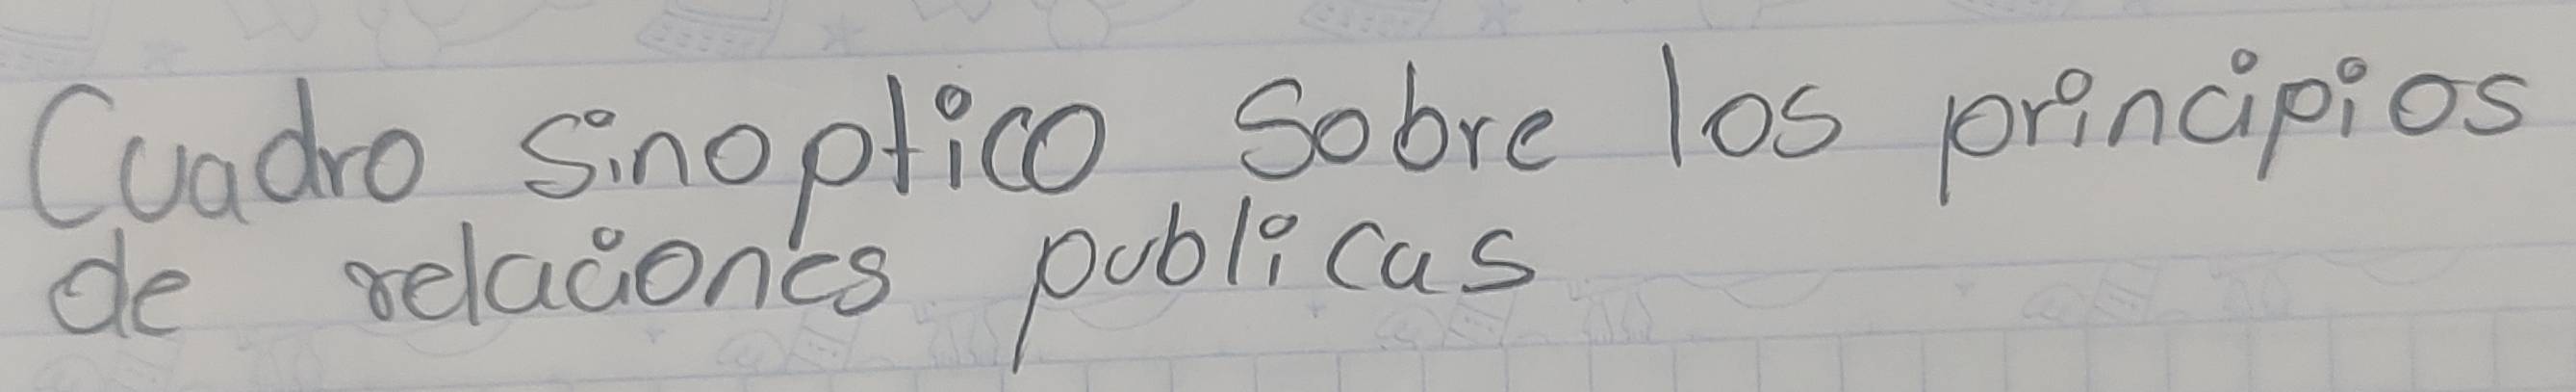 Cuadro sinoptico sobre los principios
de relaciones publicas